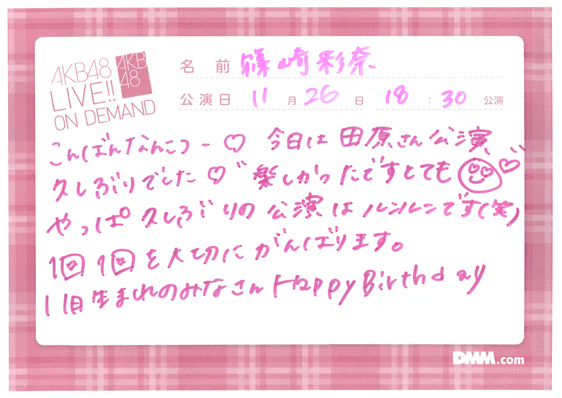 AKB48
LIVE!!
ON DEMAND
AKB
48
名 前 篠崎彩奈
公演日 11 月 26 日 18 : 30 公演
こんばんなんこつー♡ 今日は田原さん公演
久しぶりでした♡ 楽しかったですとても
やっぱ久しぶりの公演はルンルンです(笑)
1回1回を大切にがんばります。
11月生まれのみなさんHappyBirthday
DMM.com